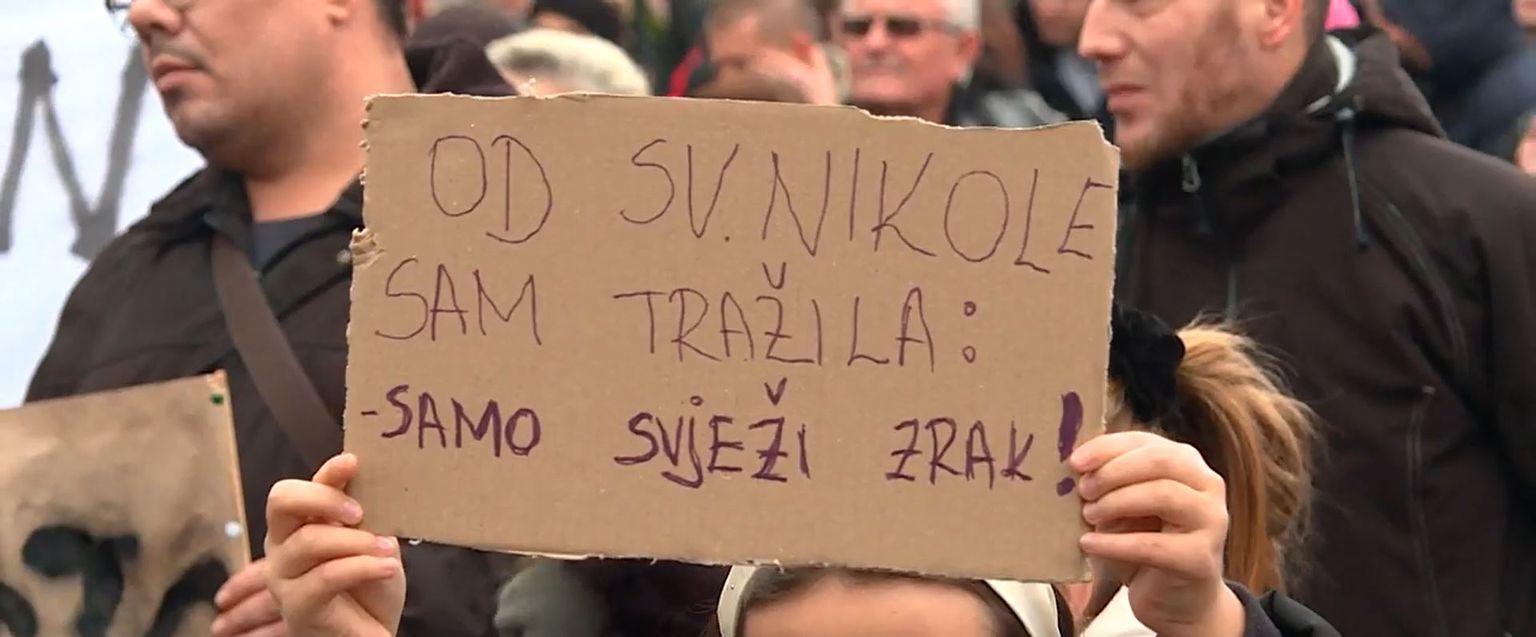 OD SV. NIKOLE
SAM TRAŽILA:
-SAMO SVjEŽI ZRAK!